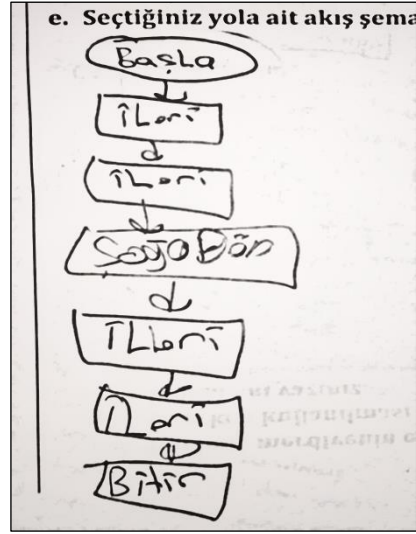 e. Seçtiğiniz yola ait akış şema
Başla
İLeri
İLeri
Sağa Dön
İLleri
İleri
Bitir